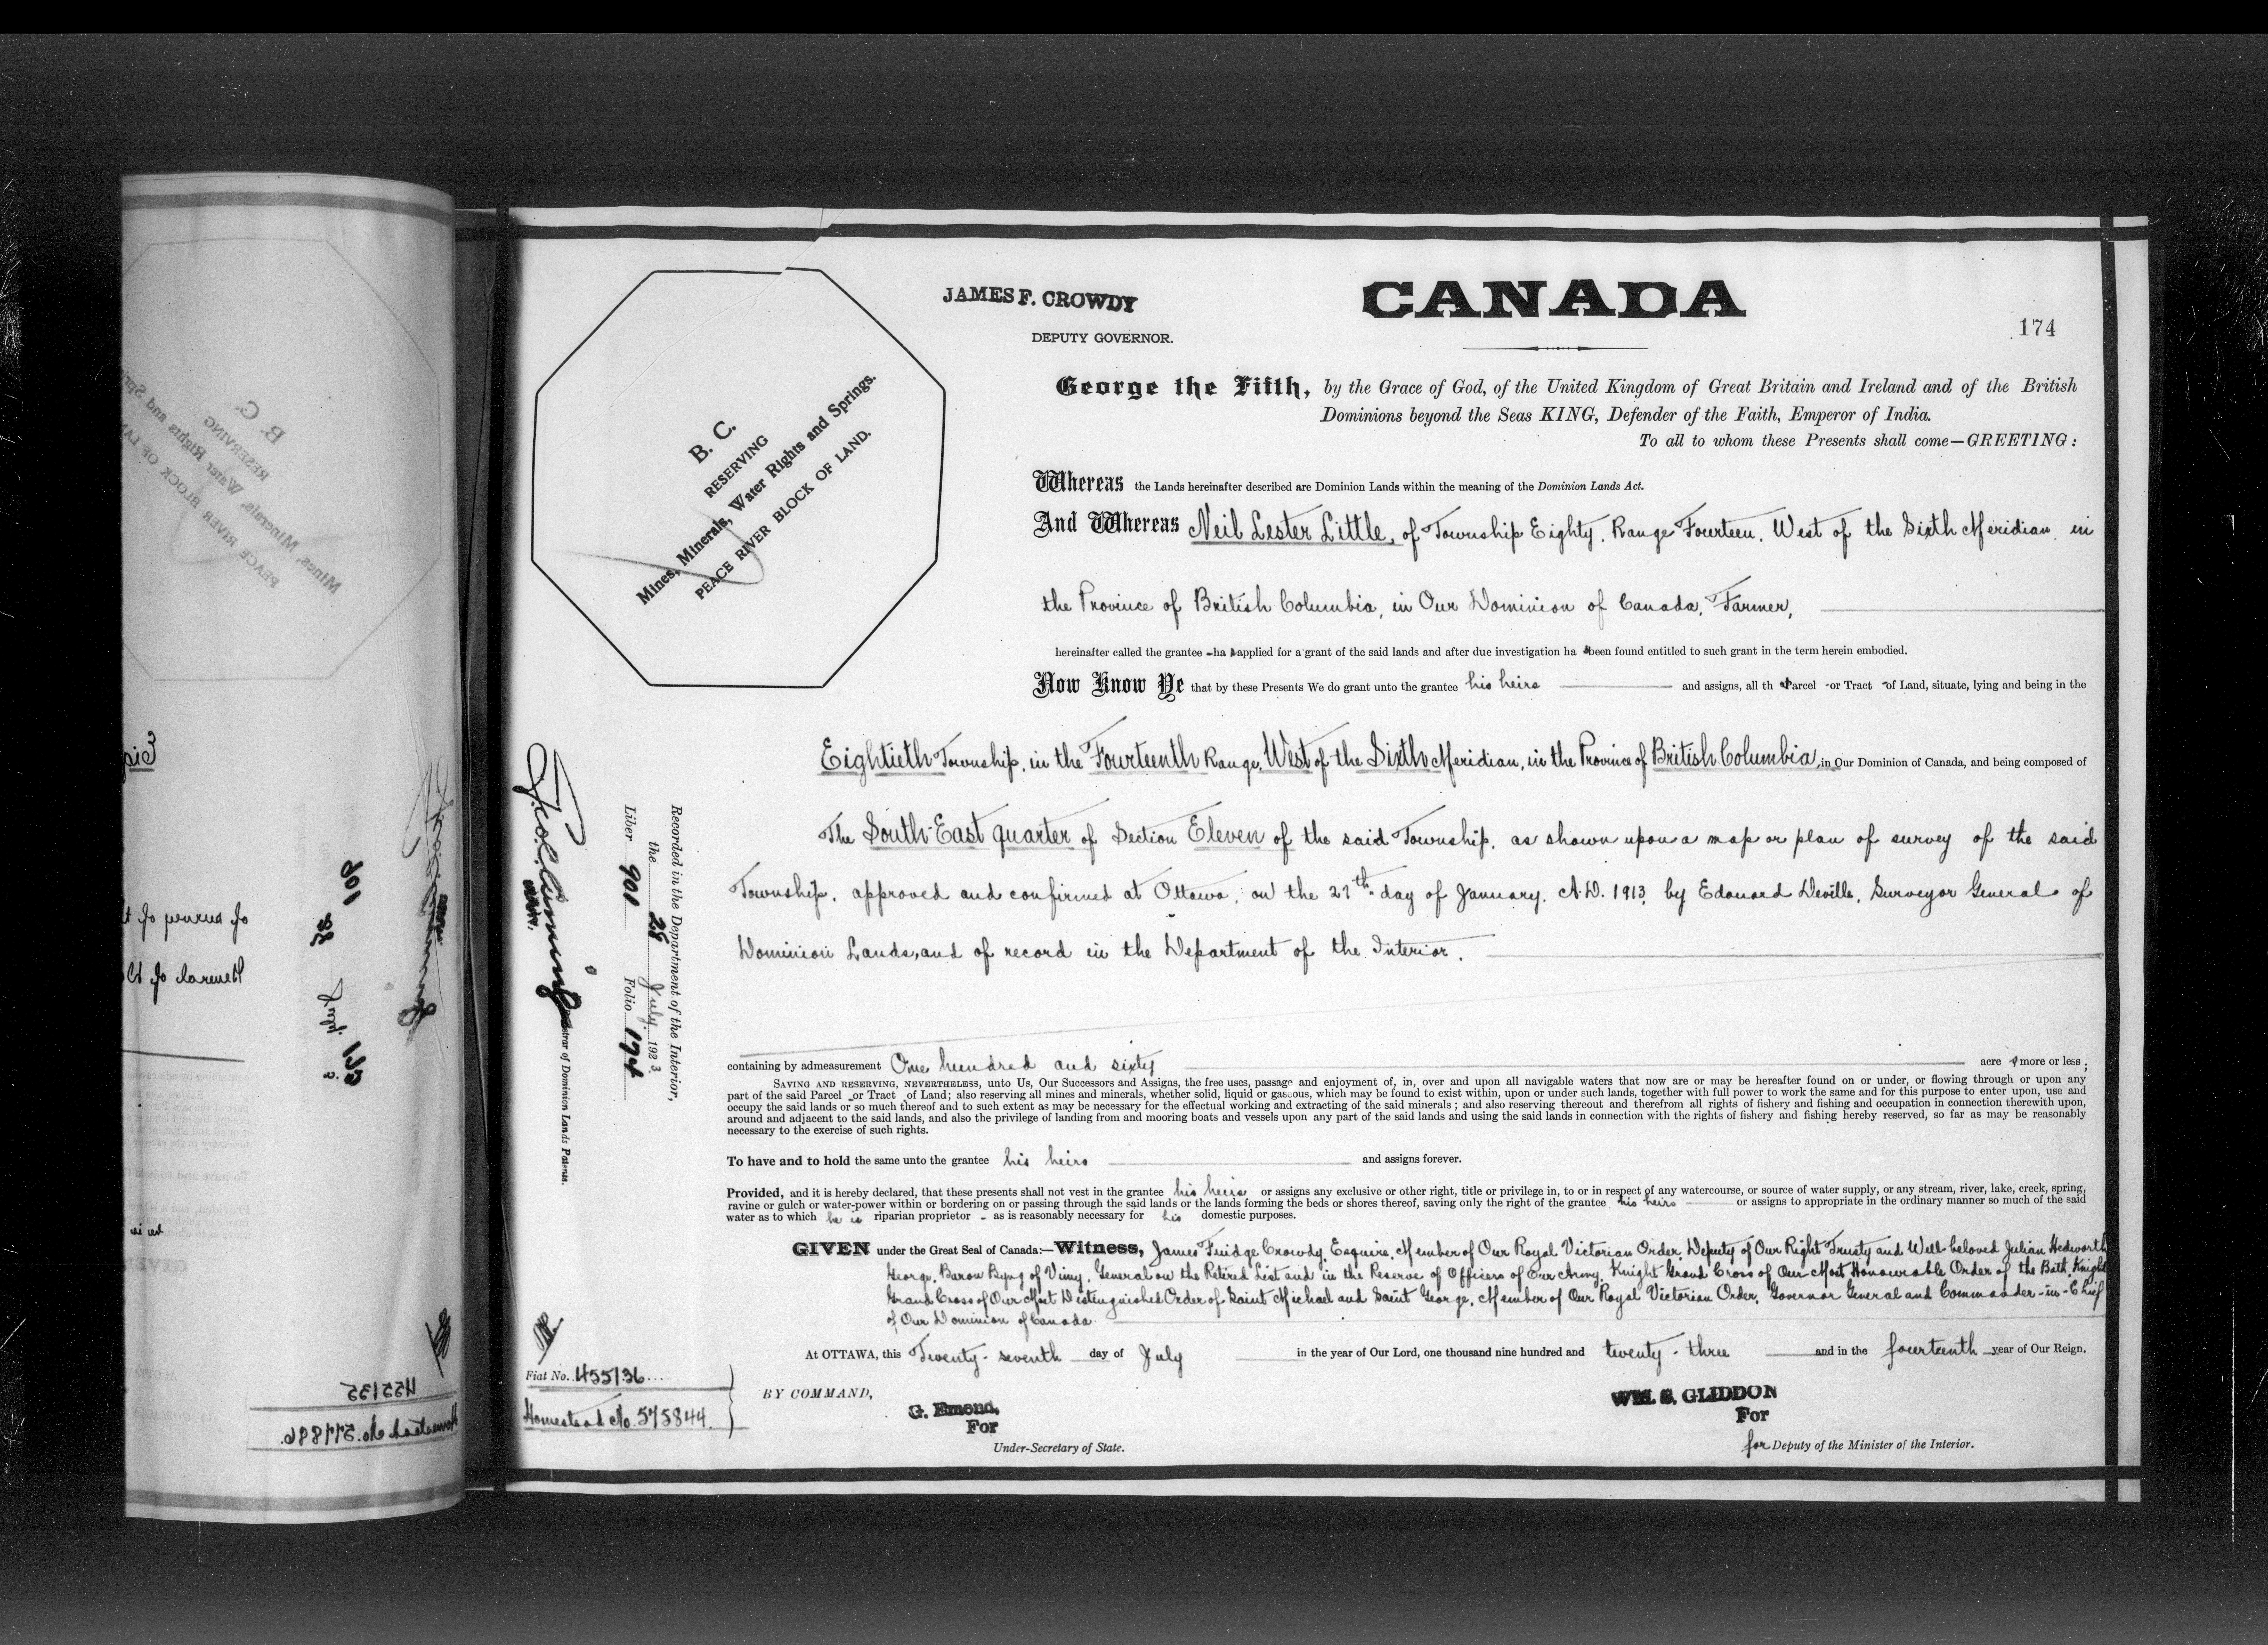 JAMES F. CROWDY
DEPUTY GOVERNOR.
CANADA
174
George the Fifth, by the Grace of God, of the United Kingdom of Great Britain and Ireland and of the British
Dominions beyond the Seas KING, Defender of the Faith, Emperor of India.
To all to whom these Presents shall come—GREETING:
B. C.
RESERVING
Mines, Minerals, Water Rights and Springs.
PEACE RIVER BLOCK OF LAND.
Whereas the Lands hereinafter described are Dominion Lands within the meaning of the Dominion Lands Act.
And Whereas Neil Lester Little, of Township Eighty, Range Fourteen, West of the Sixth Meridian, in
the Province of British Columbia, in Our Dominion of Canada, Farmer,
hereinafter called the grantee - has applied for a grant of the said lands and after due investigation has been found entitled to such grant in the term herein embodied.
Now Know Ye that by these Presents We do grant unto the grantee his heirs and assigns, all that Parcel - or Tract - of Land, situate, lying and being in the
Eightieth Township, in the Fourteenth Range, West of the Sixth Meridian, in the Province of British Columbia, in Our Dominion of Canada, and being composed of
The South-East quarter of Section Eleven of the said Township, as shown upon a map or plan of survey of the said
Township, approved and confirmed at Ottawa, on the 27th day of January, A.D. 1913, by Edouard Deville, Surveyor General of
Dominion Lands, and of record in the Department of the Interior.
containing by admeasurement One hundred and sixty acres more or less;
SAVING AND RESERVING, NEVERTHELESS, unto Us, Our Successors and Assigns, the free uses, passage and enjoyment of, in, over and upon all navigable waters that now are or may be hereafter found on or under, or flowing through or upon any
part of the said Parcel - or Tract - of Land; also reserving all mines and minerals, whether solid, liquid or gaseous, which may be found to exist within, upon or under such lands, together with full power to work the same and for this purpose to enter upon, use and
occupy the said lands or so much thereof and to such extent as may be necessary for the effectual working and extracting of the said minerals; and also reserving thereout and therefrom all rights of fishery and fishing and occupation in connection therewith upon,
around and adjacent to the said lands, and also the privilege of landing from and mooring boats and vessels upon any part of the said lands and using the said lands in connection with the rights of fishery and fishing hereby reserved, so far as may be reasonably
necessary to the exercise of such rights.
To have and to hold the same unto the grantee his heirs and assigns forever.
Provided, and it is hereby declared, that these presents shall not vest in the grantee his heirs or assigns any exclusive or other right, title or privilege in, to or in respect of any watercourse, or source of water supply, or any stream, river, lake, creek, spring,
ravine or gulch or water-power within or bordering on or passing through the said lands or the lands forming the beds or shores thereof, saving only the right of the grantee his heirs or assigns to appropriate in the ordinary manner so much of the said
water as to which he is riparian proprietor - as is reasonably necessary for his domestic purposes.
GIVEN under the Great Seal of Canada:—Witness, James Fuidge Crowdy, Esquire, Member of Our Royal Victorian Order, Deputy of Our Right Trusty and Well-beloved Julian Hedworth
George, Baron Byng of Vimy, General on the Retired List and in the Reserve of Officers of Our Army, Knight Grand Cross of Our Most Honourable Order of the Bath, Knight
Grand Cross of Our Most Distinguished Order of Saint Michael and Saint George, Member of Our Royal Victorian Order, Governor General and Commander-in-Chief
of Our Dominion of Canada.
At OTTAWA, this Twenty-seventh day of July in the year of Our Lord, one thousand nine hundred and twenty-three and in the fourteenth year of Our Reign.
BY COMMAND,
G. Emond,
For
Under-Secretary of State.
WM. S. GLIDDON
For
for Deputy of the Minister of the Interior.
Recorded in the Department of the Interior,
the 28 July 1923
Liber 901 Folio 174
Registrar of Dominion Lands Patents.
Fiat No. 455136
Homestead No. 575844